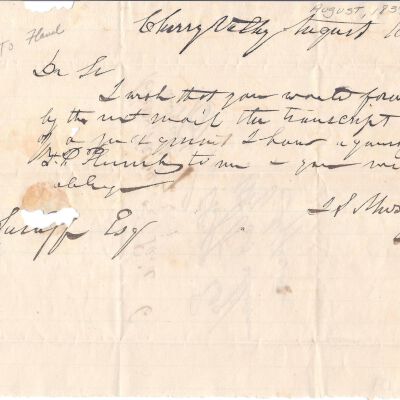 August, 183
To Head
Cherry Valley August 10
Dr Sir
I wish that you would forw
by the next mail the transcript
of a judgment I have agains
to me - you wi
oblige
Esq